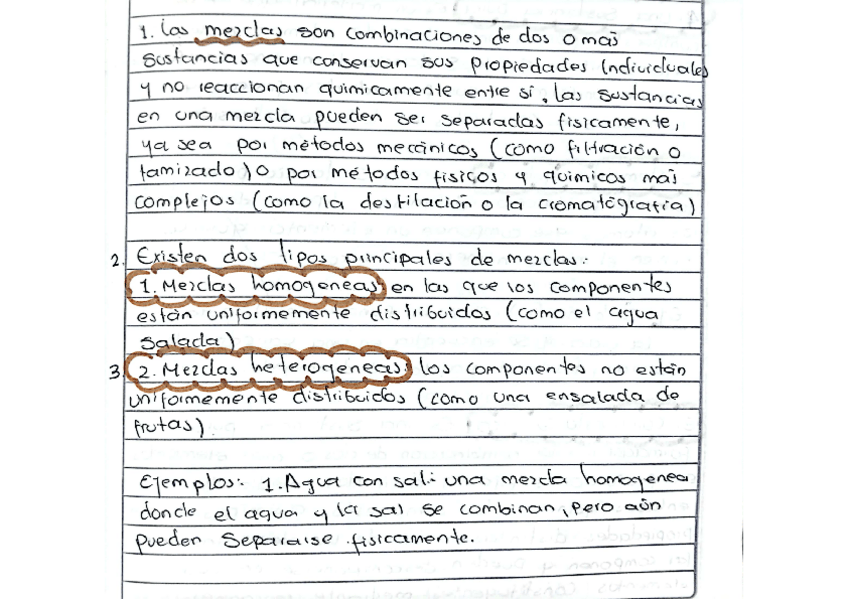 1. Las mezclas son combinaciones de dos o más
sustancias que conservan sus propiedades individuales
y no reaccionan quimicamente entre si, las sustancias
en una mezcla pueden ser separadas fisicamente,
ya sea por métodos mecánicos (como filtración o
tamizado) o por métodos fisicos y quimicos más
complejos (como la destilación o la cromatografia)
2. Existen dos tipos principales de mezclas:
1. Mezclas homogeneas: en las que los componentes
están uniformemente distribuidos (como el agua
salada)
3. 2. Mezclas heterogeneas: los componentes no están
uniformemente distribuidos (como una ensalada de
frutas).
Ejemplos: 1. Agua con sal: una mezcla homogenea
donde el agua y la sal se combinan, pero aún
pueden separarse fisicamente.